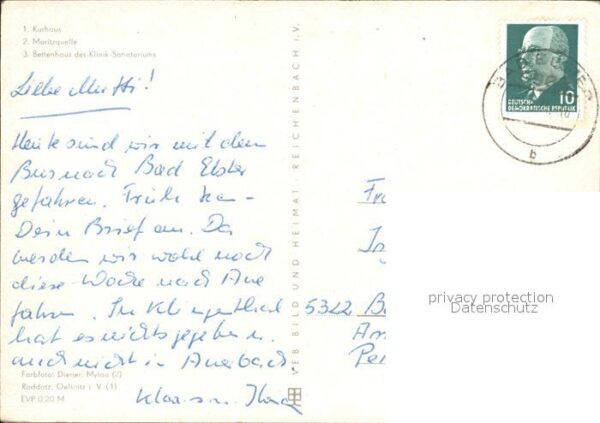 1. Kurhaus
2. Moritzquelle
3. Bettenhaus des Klinik-Sanatoriums
Liebe Mutti!
Heute sind wir mit dem
Bus nach Bad Elster
gefahren. Früh kam
Dein Brief an. Da
werden wir wohl noch
diese Woche nach Aue
fahren. In Klingenthal
hat es nichts gegeben u.
auch nicht in Auerbach.
Klaus u.
Farbfoto: Diener, Mylau (2)
Raddatz, Oelsnitz i. V. (1)
EVP 0,20 M
VEB BILD UND HEIMAT REICHENBACH i.V.
10
DEUTSCHE
DEMOKRATISCHE REPUBLIK
BAD ELSTER
b
5322
privacy protection
Datenschutz